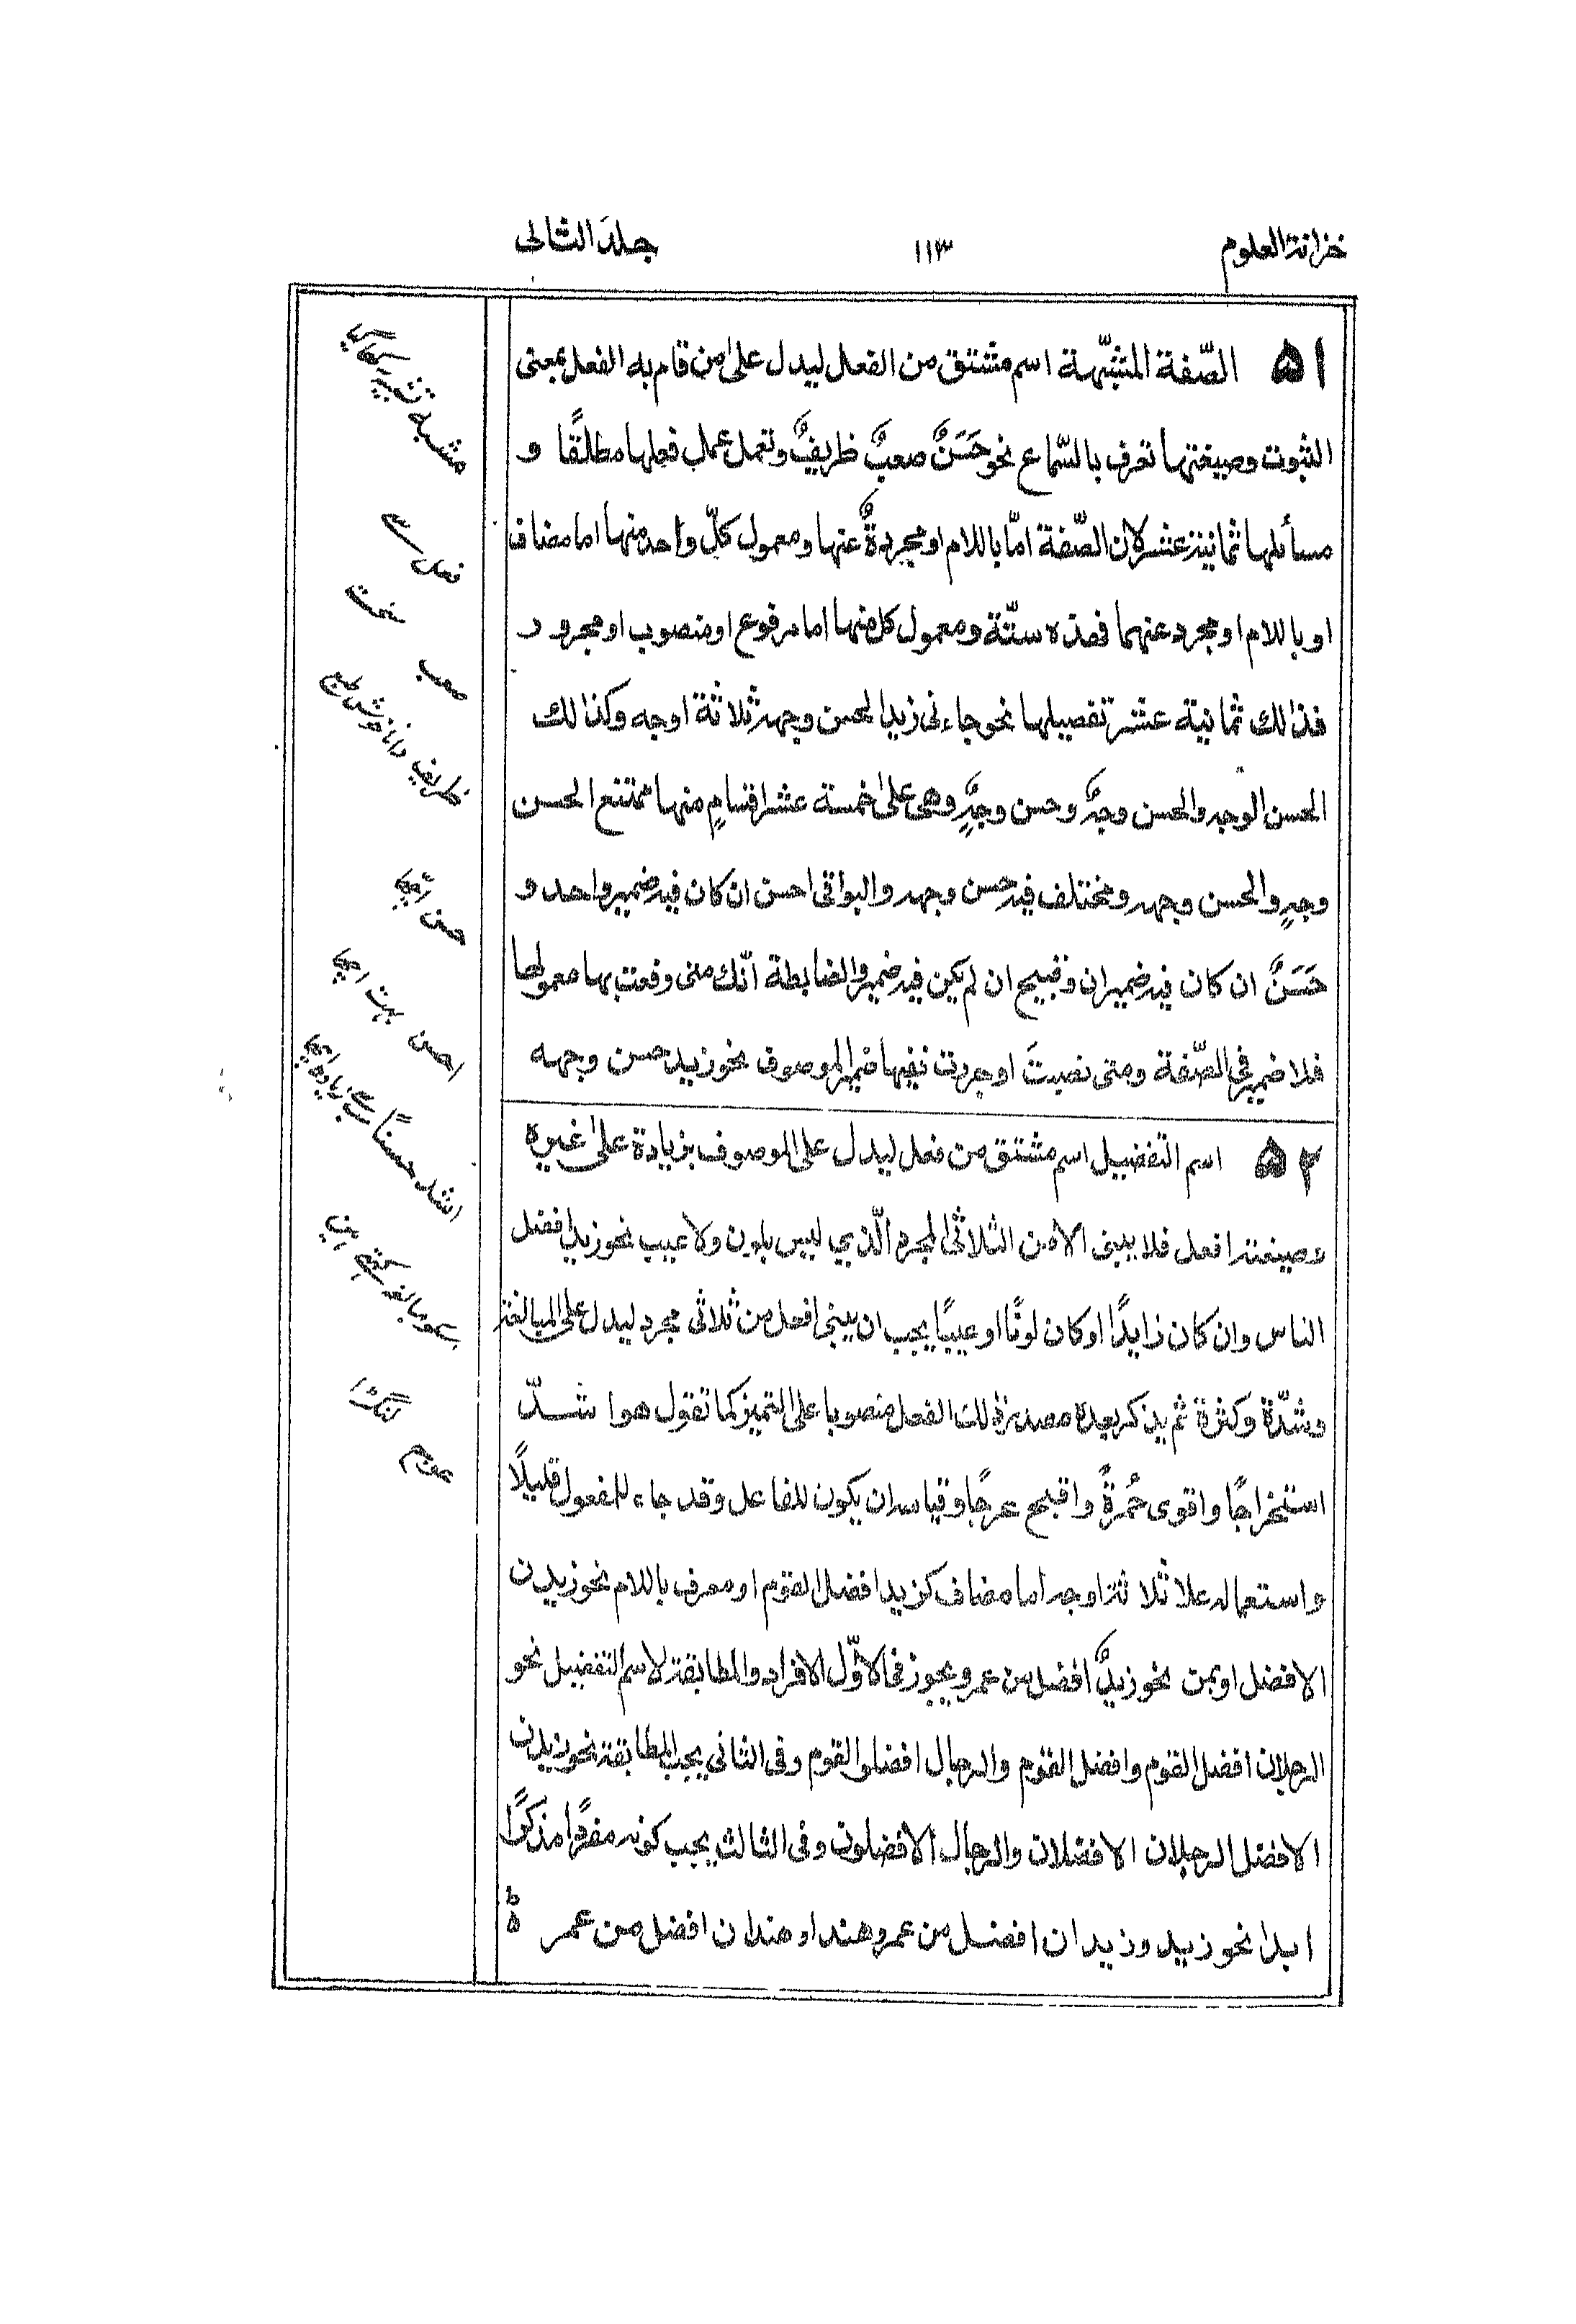 خزانة العلوم ١١٣ جلد الثانى
٥١ الصّفة المشبّهة اسم مشتق من الفعل ليدل على من قام به الفعل بمعنى
الثبوت وصيغتها تعرف بالسّماع نحو حَسَنٌ صعبٌ ظريفٌ وتعمل عمل فعلها مطلقًا و
مسألها ثمانية عشر لان الصّفة امّا باللام او مجردةٌ عنها ومعمول كلّ واحد منها اما مضاف
او باللام او مجرد عنهما فهذه ستّة ومعمول كل منها اما مرفوع او منصوب او مجرور
فذالك ثمانية عشر تفصيلها نحو جاءنى زيد الحسن وجهه ثلاثة اوجه وكذالك
الحسن الوجه والحسن وجهٌ وحسن وجهٍ وهى على خمسة عشر اقسامٍ منها ممتنع الحسن
وجهٍ والحسن وجهه ومختلف فيه حسن وجهه والبواقى احسن ان كان فيه ضمير واحد و
حَسَنٌ ان كان فيه ضميران وقبيح ان لم يكن فيه ضمير والضابطة انّك متى رفعت بها معمولها
فلا ضمير فى الصّفة ومتى نصبتَ او جررت ففيها ضمير الموصوف نحو زيد حسن وجهه
٥٢ اسم التفضيل اسم مشتق من فعل ليدل على الموصوف بزيادة على غيره
وصيغته افعل فلا يبنى الا من الثلاثى المجرد الّذي ليس بلون ولا عيب نحو زيد افضل
الناس وان كان زايدًا او كان لونًا او عيبًا يجب ان يبنى افعل من ثلاثى مجرد ليدل على المبالغة
وشدّة وكثرة ثم يذكر بعده مصدر ذلك الفعل منصوبا على التميز كما تقول هو اشدّ
استخراجًا واقوى حُمرةً واقبح عرجًا وقياسه ان يكون للفاعل وقد جاء للمفعول قليلًا
واستعماله علا ثلاثة اوجه اما مضاف كزيد افضل القوم او معرف باللام نحو زيدن
الافضل او بمن نحو زيدٌ افضل من عمرو ويجوز فى الاوّل الافراد والمطابقة لاسم التفضيل نحو
الرجلان افضل القوم وافضل القوم والرجال افضلوا القوم وفى الثاني يجب المطابقة نحو زيدن
الافضل الرجلان الافضلان والرجال الافضلون وفى الثالث يجب كونه مفردًا مذكرًا
ابدا نحو زيد وزيدان افضل من عمرو هند او هندان افضل من عمر
فعل سے
سخت
صعب
ظريف دانا خوش طبع
حسن اچھا
احسن بہت اچھا
اشد حسنًا سب زيادہ اچھا
لنگڑا